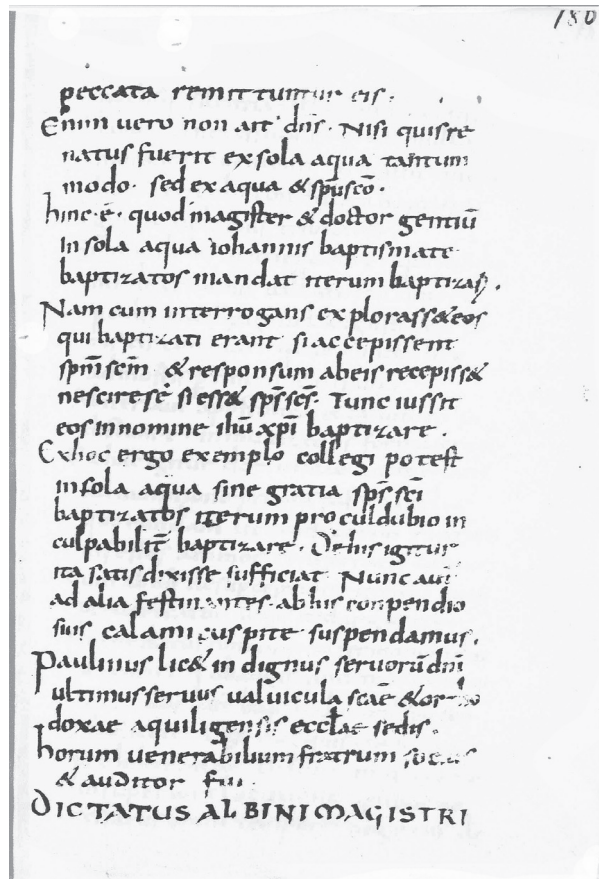 180
peccata remittuntur eis.
Enim uero non ait dn̄s. Nisi quis re
natus fuerit ex sola aqua tantum
modo. sed ex aqua & sp̄u sc̄o.
hinc. ē. quod magister & doctor gentiū
In sola aqua iohannis baptismate
baptizatos mandat iterum baptizari.
Nam cum interrogans explorass& eos
qui baptizati erant si accepissent
sp̄m sc̄m & responsum ab eis recepiss&
nescire se si ess& sp̄s sc̄s. Tunc iussit
eos in nomine ih̄u xp̄i baptizare.
Ex hoc ergo exemplo collegi potest
in sola aqua sine gratia sp̄s sc̄i
baptizatos iterum procul dubio in
culpabilit̄ baptizare. De his igitur
ita satis dixisse sufficiat Nunc
ad alia festinantes. ab his conpendio
suis calami cuspite suspendamus.
Paulinus lic& indignus seruorū dn̄i
ultimus seruus ualuicula sc̄ae & or
doxae aquiligensis eccl̄ae sedis.
horum uenerabilium fratrum socius
& auditor fui.
DICTATUS ALBINI MAGISTRI